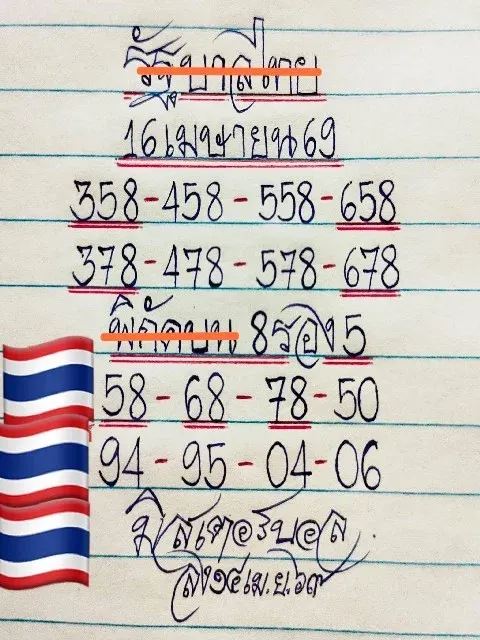 รัฐบาลไทย
16 เมษายน 69
358-458-558-658
378-478-578-678
พิกัดบน 8 รอง 5
58-68-78-50
94-95-04-06
มิสเตอร์บอล
ลง๑๕เม.ย.๖๙